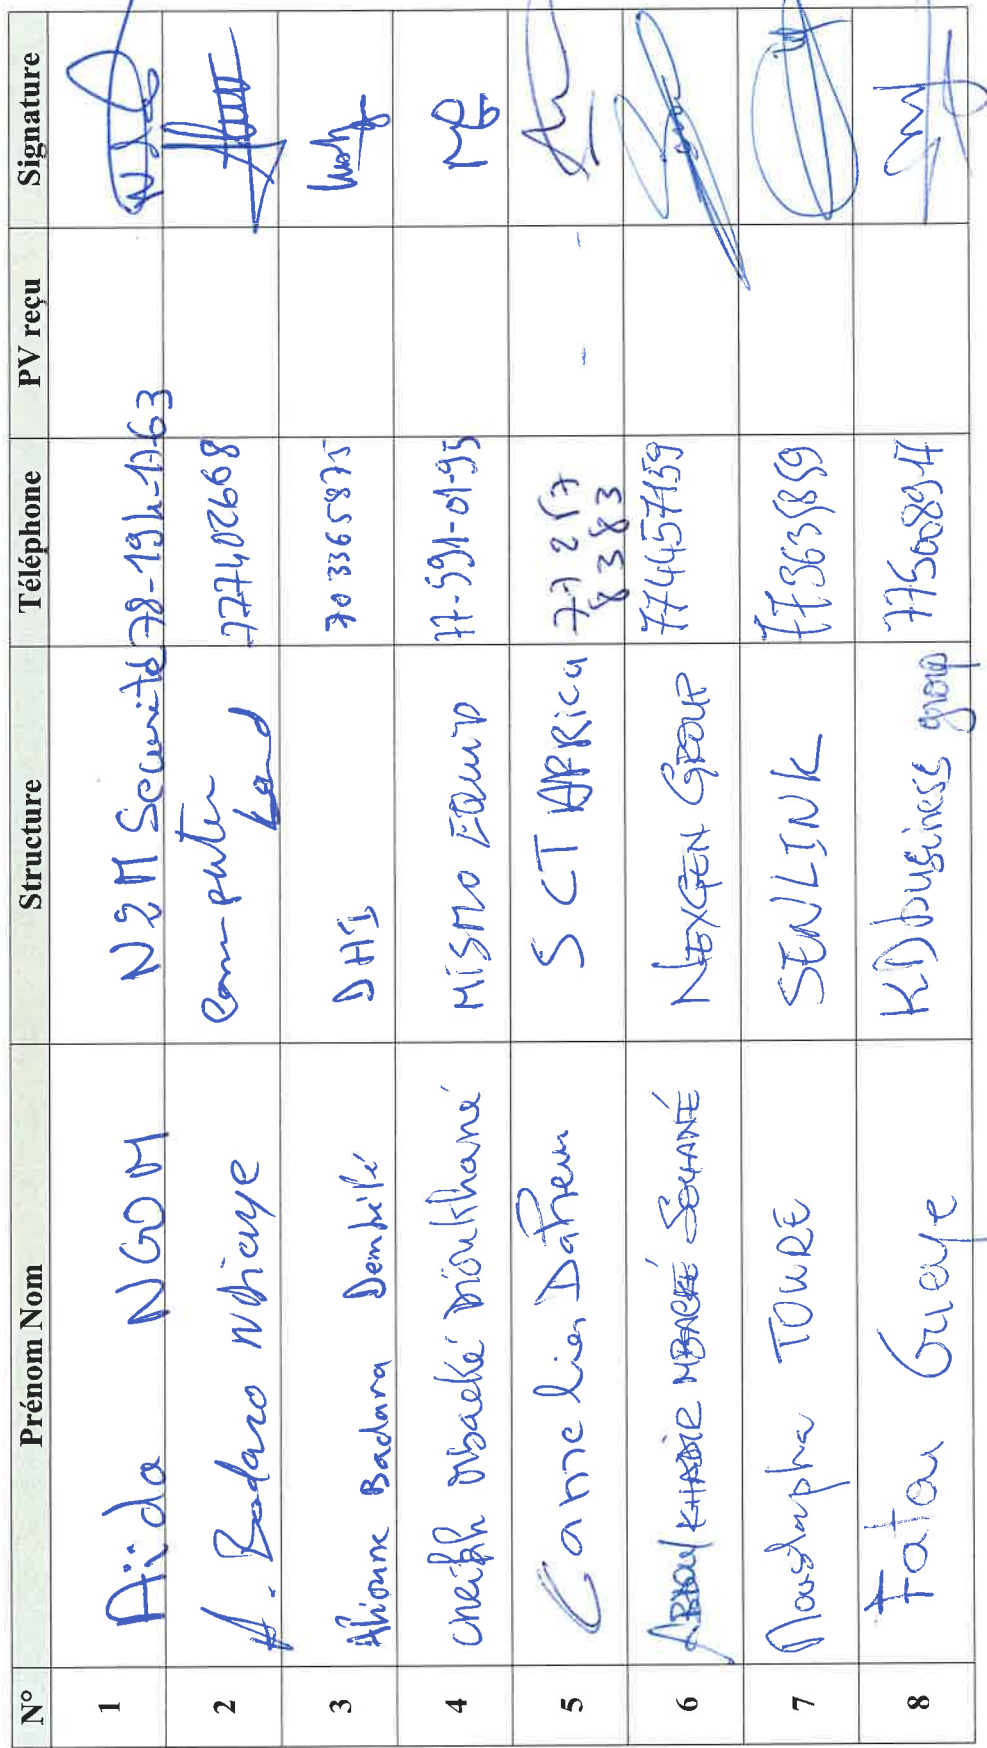 N° Prénom Nom Structure Téléphone PV reçu Signature
1 Aïda NGOM N2M Sécurité 78-194-1763
2 A. Badara Ndiaye Computer Land 777402668
3 Alioune Badara Dembélé DHI 703365875
4 Cheikh Mbacké Dioukhané MISMO EQUIP 77-591-01-95
5 SCT AFRICA 77 217
8383 - -
6 ABDOUL KHADIR MBACKÉ SOUHANÉ NEXGEN GROUP 774457159
7 Moustapha TOURE SENLINK 773635859
8 Fatou Gueye KD business group 775008917